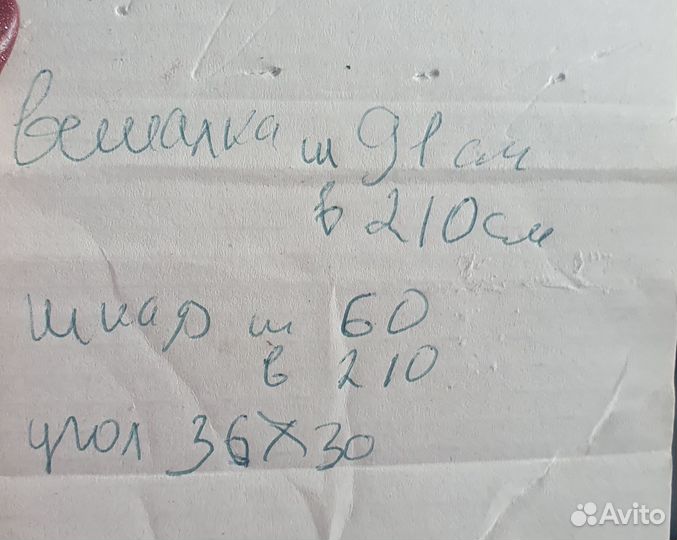 вешалка ш 91 см
в 210 см
шкаф ш 60
в 210
угол 36X30
Avito